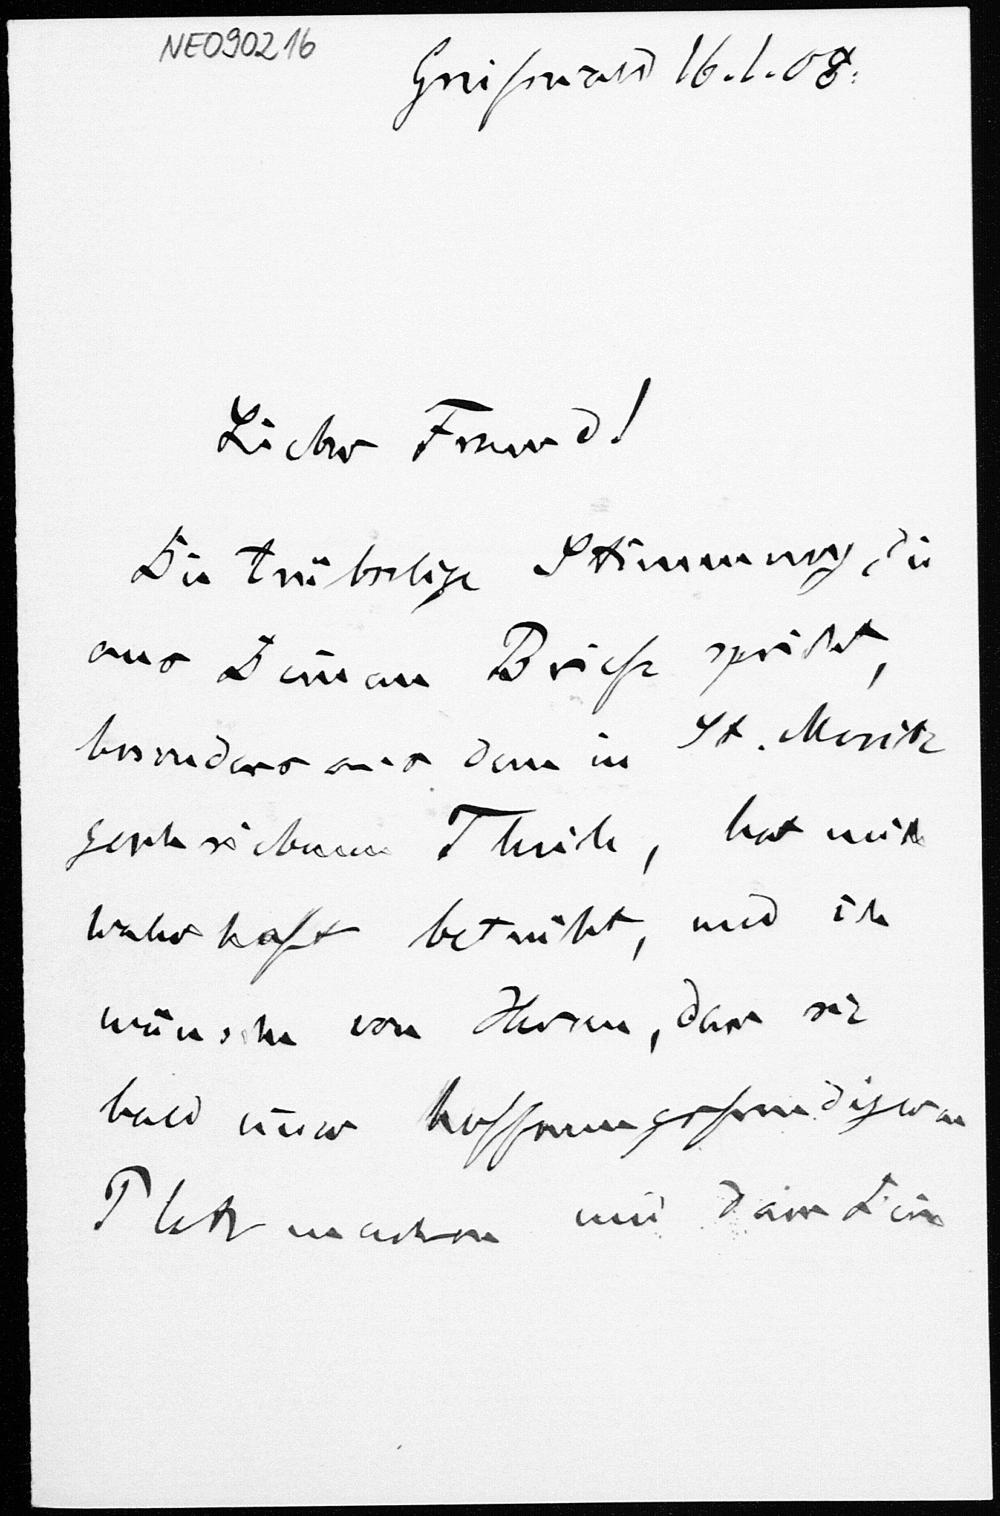 NE090216
Greifswald 16.1.08.
Lieber Freund!
Die trübselige Stimmung, die
aus Deinem Briefe spricht,
besonders aus dem in St. Moritz
geschriebenen Theile, hat mich
wahrhaft betrübt, und ich
wünsche von Herzen, dass sie
bald einer hoffnungsfreudigeren
Platz machen und dass Dein